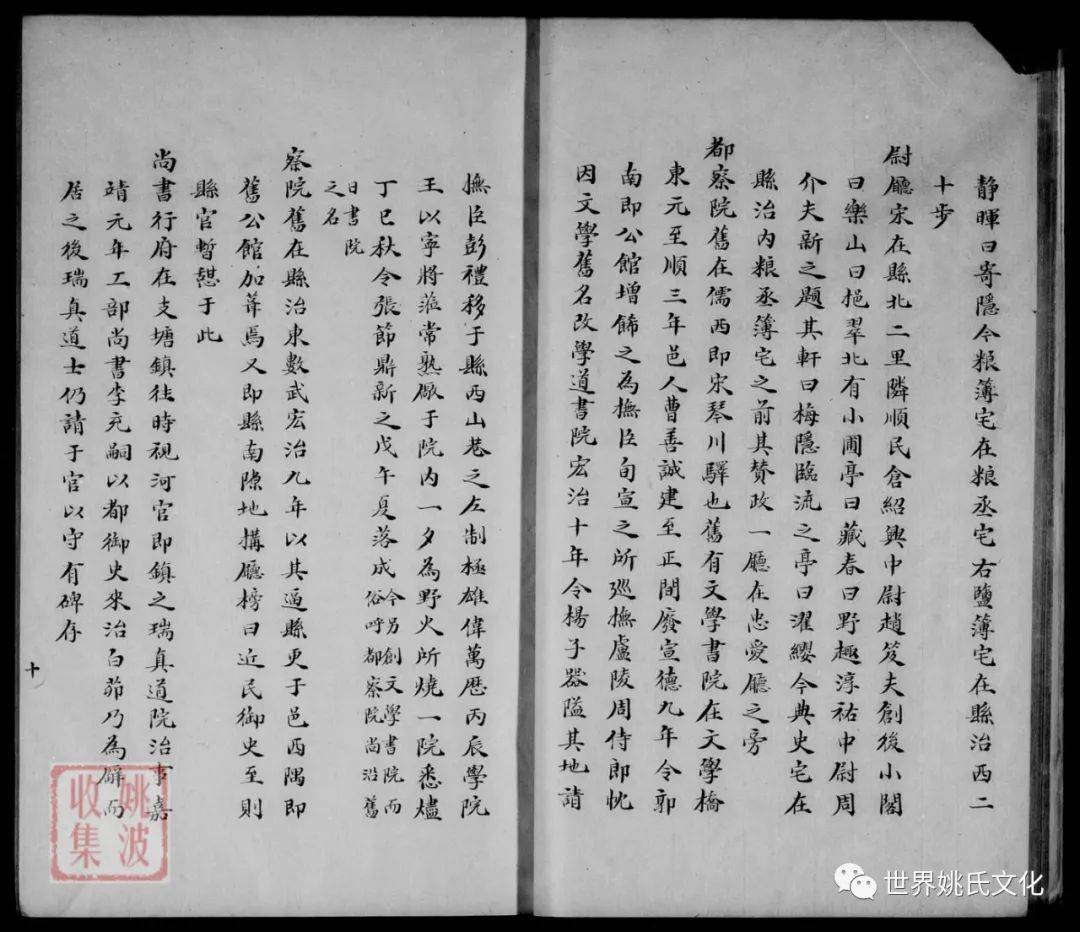 静暉曰寄隱今粮簿宅在粮丞宅右鹽薄宅在縣治西二
十步
尉廳宋在縣北二里隣順民倉紹興中尉趙笈夫創後小閣
曰樂山曰挹翠北有小圃亭曰藏春曰野趣淳祐中尉周
介夫新之題其軒曰梅隱臨流之亭曰濯纓今典史宅在
縣治内粮丞簿宅之前其贊政一廳在忠愛廳之旁
都察院舊在儒西即宋琴川驛也舊有文學書院在文學橋
東元至順三年邑人曹善誠建至正間廢宣德九年令郭
南即公館增飾之為撫臣旬宣之所巡撫盧陵周侍郎忱
因文學舊名改學道書院宏治十年令楊子器隘其地請
撫臣彭禮移于縣西山巷之左制極雄偉萬歷丙辰學院
王以寧將涖常熟廠于院内一夕為野火所燒一院悉燼
丁巳秋令張節鼎新之戊午夏落成俗呼都察院尚沿舊
今另創文學書院而
日書院
之名
察院舊在縣治東數武宏治九年以其逼縣更于邑西隅即
舊公館加葺焉又即縣南隙地搆廳榜曰近民御史至則
縣官暫憇于此
尚書行府在支塘鎮往時視河官即鎮之瑞真道院治事嘉
靖元年工部尚書李充嗣以都御史來治白茆乃為廨而
居之後瑞真道士仍請于官以守有碑存
十
姚波
收集
世界姚氏文化